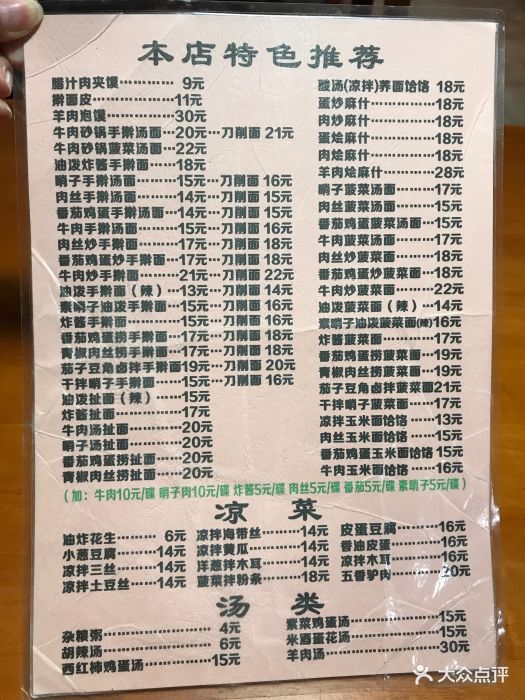 本店特色推荐
腊汁肉夹馍 9元
擀面皮 11元
羊肉泡馍 30元
牛肉砂锅手擀汤面 20元 刀削面 21元
牛肉砂锅菠菜汤面 22元
油泼炸酱手擀面 18元
哨子手擀汤面 15元 刀削面 16元
肉丝手擀汤面 14元 刀削面 15元
番茄鸡蛋手擀汤面 14元 刀削面 15元
牛肉手擀汤面 15元 刀削面 16元
肉丝炒手擀面 17元 刀削面 18元
番茄鸡蛋炒手擀面 17元 刀削面 18元
牛肉炒手擀面 21元 刀削面 22元
油泼手擀面（辣） 13元 刀削面 14元
素哨子油泼手擀面 15元 刀削面 16元
炸酱手擀面 15元 刀削面 16元
番茄鸡蛋捞手擀面 17元 刀削面 18元
青椒肉丝捞手擀面 17元 刀削面 18元
茄子豆角卤拌手擀面 19元 刀削面 20元
干拌哨子手擀面 15元 刀削面 16元
油泼扯面（辣） 15元
炸酱扯面 17元
牛肉汤扯面 20元
哨子汤扯面 20元
番茄鸡蛋捞扯面 20元
青椒肉丝捞扯面 20元
酸汤(凉拌)荞面饸饹 18元
蛋炒麻什 18元
肉炒麻什 18元
蛋烩麻什 18元
肉烩麻什 18元
羊肉烩麻什 28元
哨子菠菜汤面 17元
肉丝菠菜汤面 15元
番茄鸡蛋菠菜汤面 15元
牛肉菠菜汤面 17元
肉丝炒菠菜面 18元
番茄鸡蛋炒菠菜面 18元
牛肉炒菠菜面 22元
油泼菠菜面（辣） 14元
素哨子油泼菠菜面(辣) 16元
炸酱菠菜面 17元
番茄鸡蛋捞菠菜面 19元
青椒肉丝捞菠菜面 19元
茄子豆角卤拌菠菜面 21元
干拌哨子菠菜面 17元
凉拌玉米面饸饹 13元
肉丝玉米面饸饹 15元
番茄鸡蛋玉米面饸饹 15元
牛肉玉米面饸饹 16元
（加：牛肉10元/碟 哨子肉10元/碟 炸酱5元/碟 肉丝5元/碟 番茄5元/碟 素哨子5元/碟）
凉菜
油炸花生 6元 凉拌海带丝 14元 皮蛋豆腐 16元
小葱豆腐 14元 凉拌黄瓜 14元 香油皮蛋 16元
凉拌三丝 14元 洋葱拌木耳 14元 凉拌木耳 16元
凉拌土豆丝 14元 菠菜拌粉条 18元 五香驴肉 20元
汤类
杂粮粥 4元 紫菜鸡蛋汤 15元
胡辣汤 6元 米酒蛋花汤 15元
西红柿鸡蛋汤 15元 羊肉汤 30元
大众点评